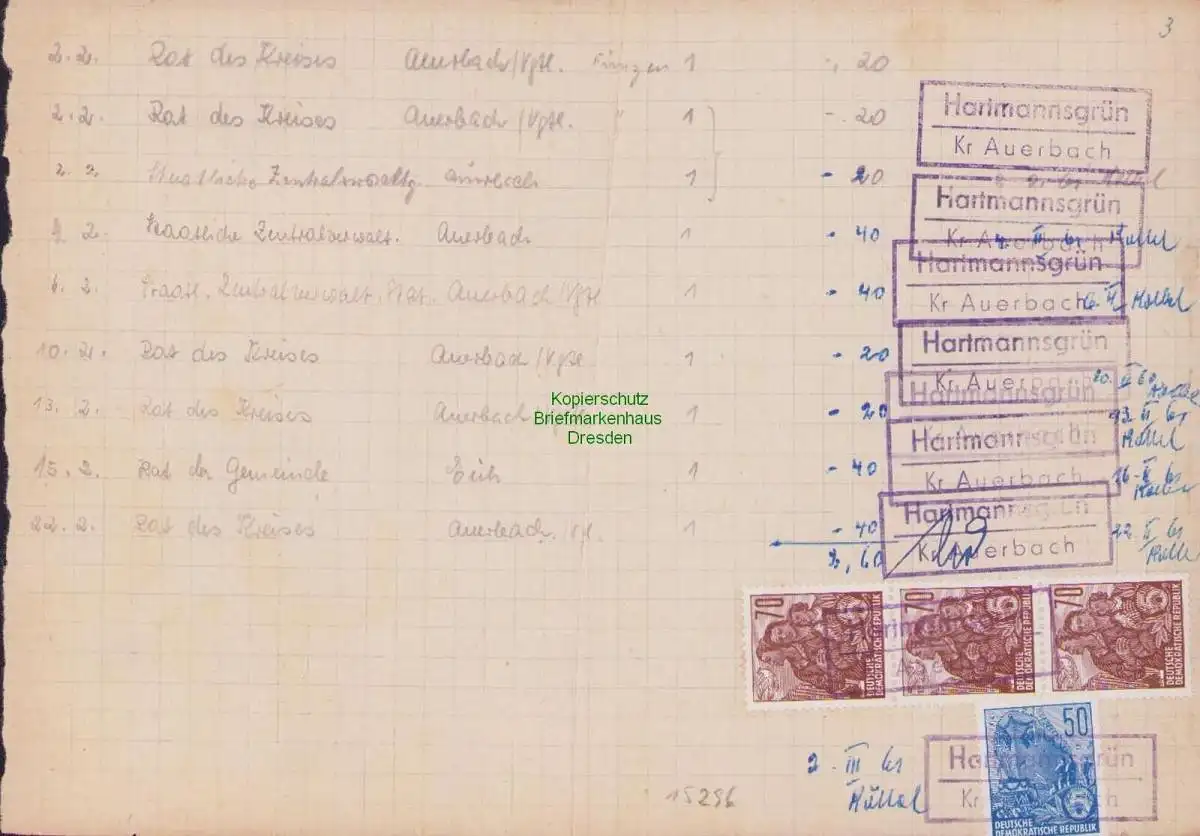 3
2. 2. Rat des Kreises Auerbach/Vgtl. 1 -, 20
2. 2. Rat des Kreises Auerbach/Vgtl. " 1 -. 20
Hartmannsgrün
Kr Auerbach
2. 2. Staatliche Zentralverwaltg. Auerbach 1 - 20
Hartmannsgrün
2. Staatliche Zentralverwalt. Auerbach 1 - 40
Kr Auerbach
Hartmannsgrün
2. Staatl. Zentralverwalt. Stat. Auerbach/Vgtl 1 - 40
Kr Auerbach 6. II
Hartmannsgrün
10. 2. Rat des Kreises Auerbach/Vgtl. 1 - 20
Kr Auerbach
Hartmannsgrün
13. 2. Rat des Kreises Auerbach 1 - 20
Kopierschutz
Briefmarkenhaus
Dresden
Hartmannsgrün
15. 2. Rat der Gemeinde Eich 1 - 40
Kr Auerbach
Hartmannsgrün
22. 2. Rat des Kreises Auerbach. 1 - 40
22. II
Kr Auerbach
2,60
70 70 70
DEUTSCHE DEMOKRATISCHE REPUBLIK
DEUTSCHE DEMOKRATISCHE REPUBLIK
DEUTSCHE DEMOKRATISCHE REPUBLIK
50
2. III
Hartmannsgrün
Kr Auerbach
15296
DEUTSCHE
DEMOKRATISCHE REPUBLIK